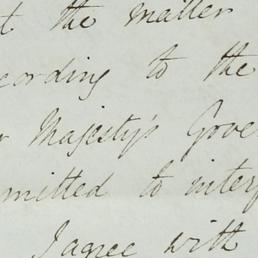 t the matter
cording to the
r Majesty's Gove
mitted to interf
I agree with